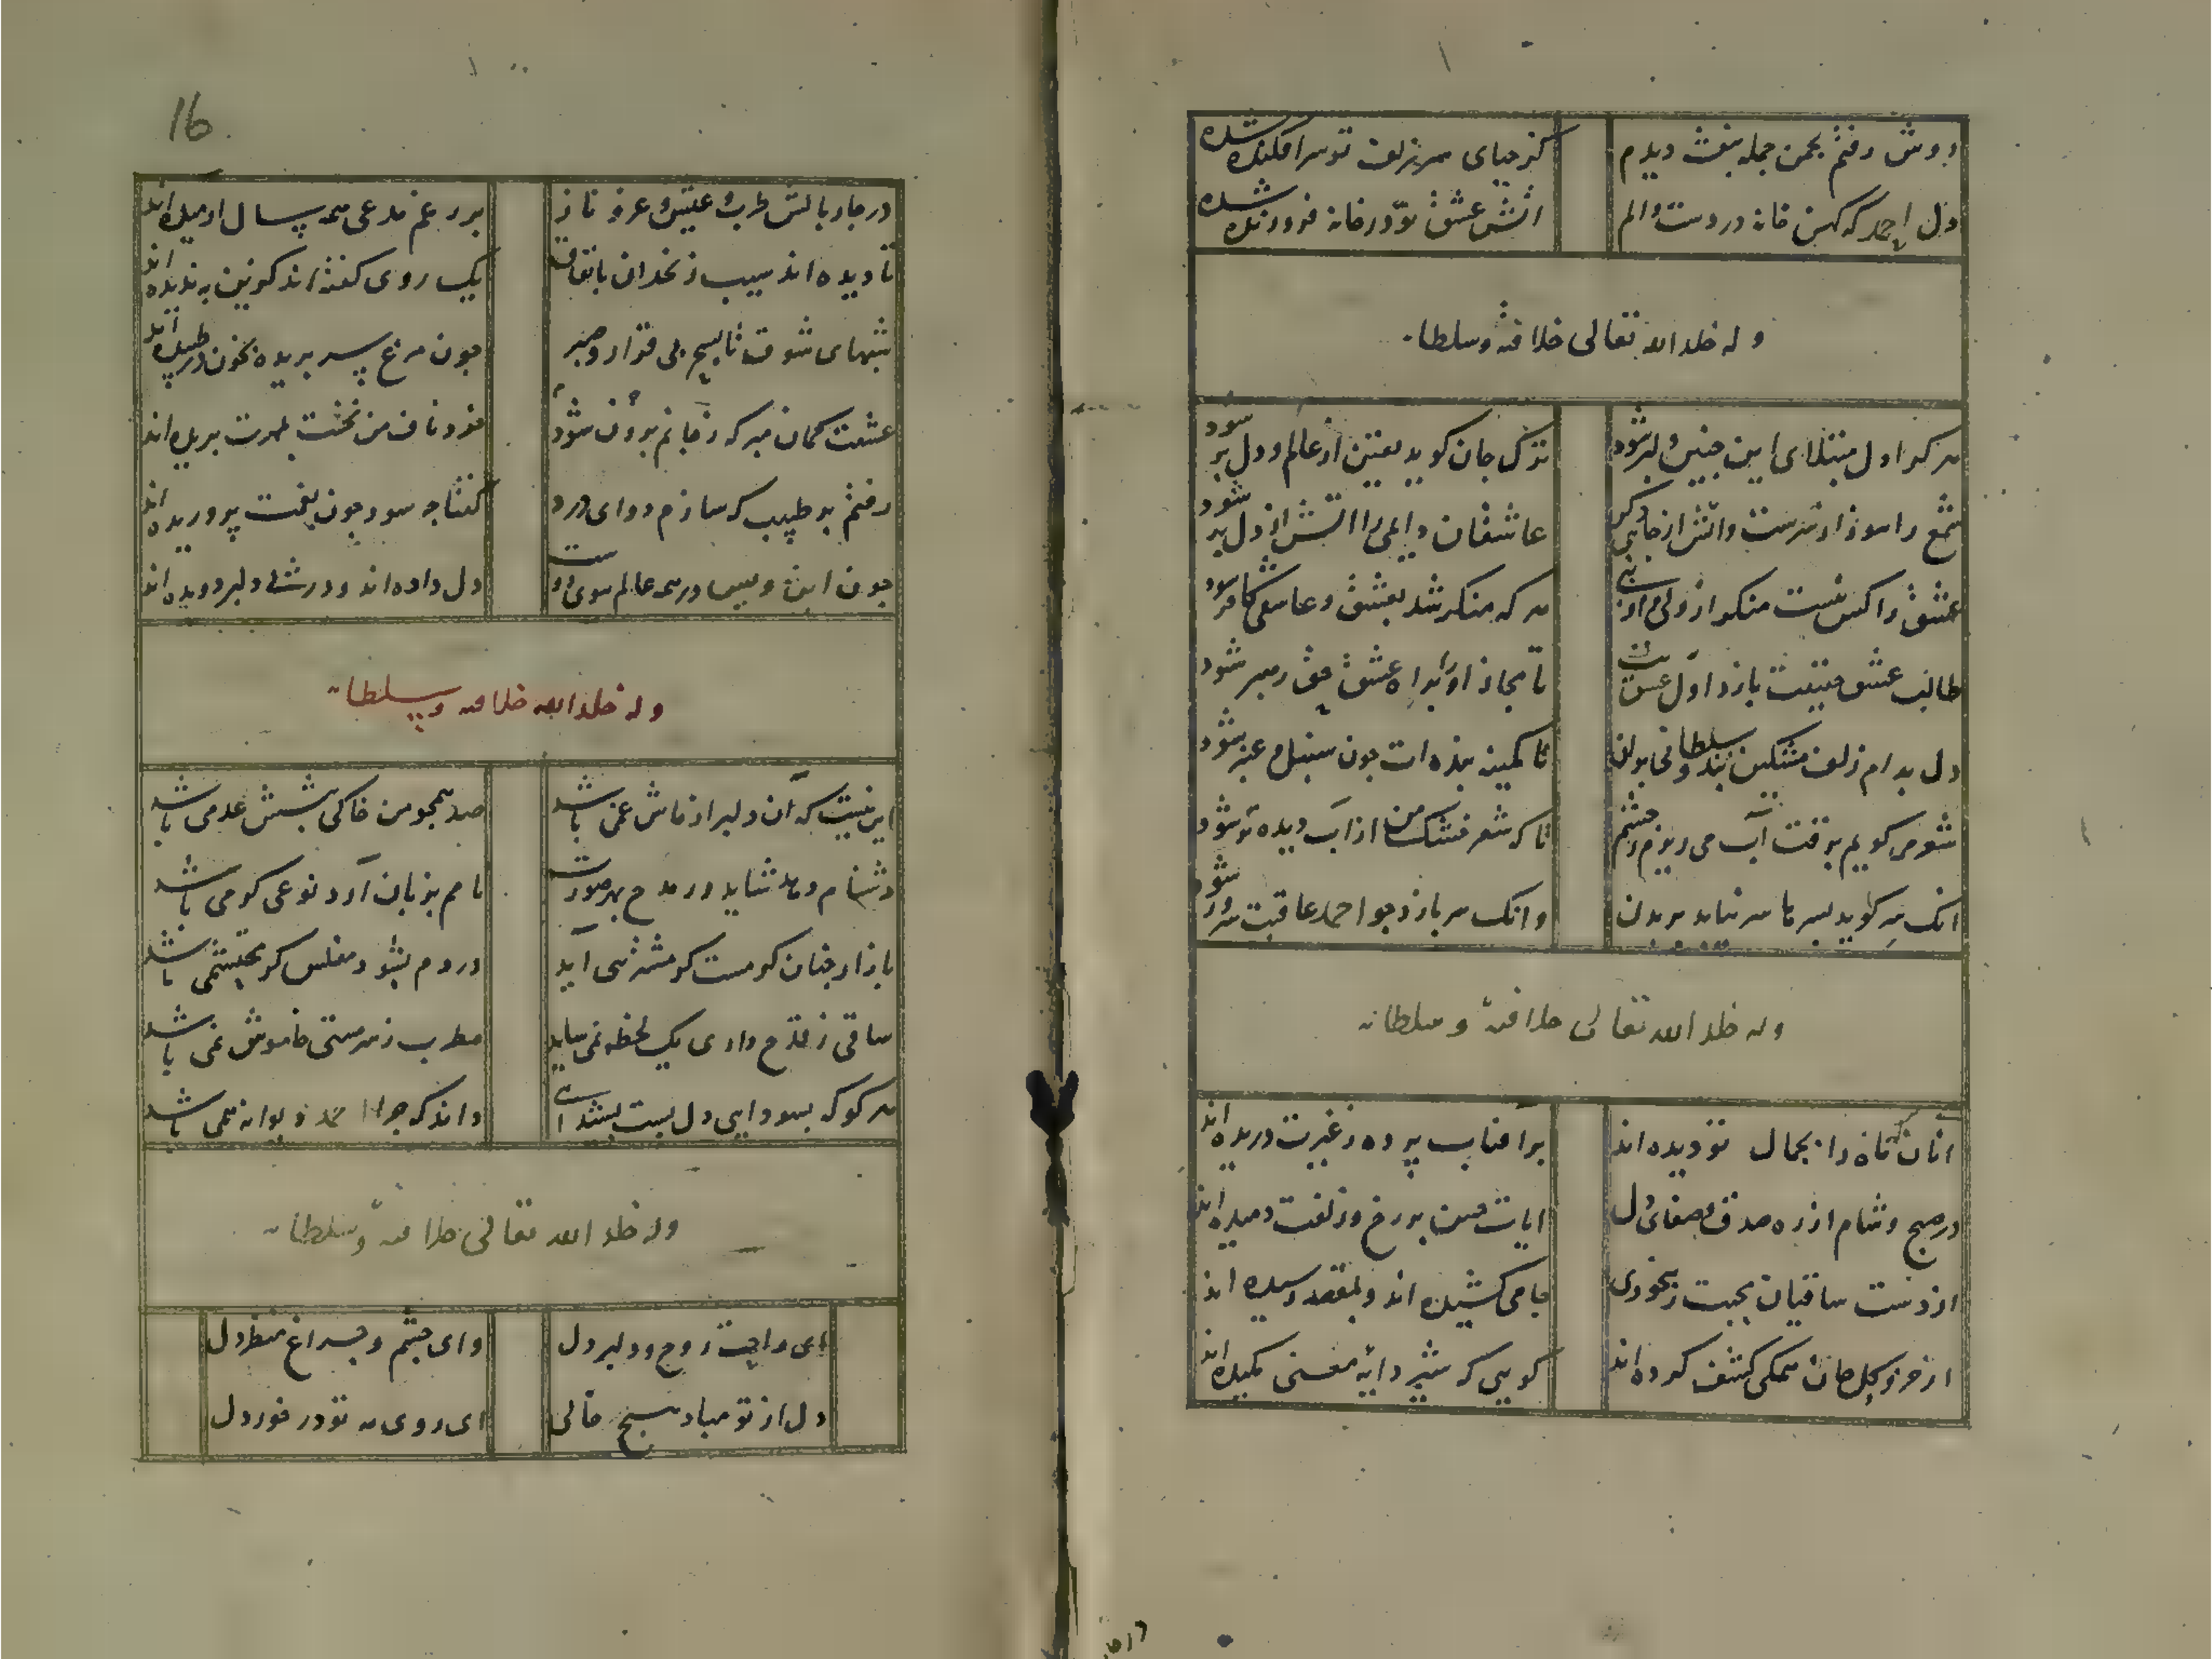 دوش رفتم بچمن جمله بنفشه دیدم
کز حیای سر زلف تو سرافکنده شده
دل احمد که کهن خانه دردست و الم
آتش عشق تو در خانه فروزنده شده
وله خلد الله تعالی خلافته وسلطانه
هر کرا دل مبتلای این چنین دلبر شود
ترک جان کوید یقین از عالم و دل بر شود
شمع را سوز از سرست و آتش از جای دگر
عاشقان را آتش از دل بر شود
عشق را کس نیست منکر
هر که منکر شد بعشق و عاشقی کافر شود
طالب عشق حقیقت بازد اول عشق
تا مجاز او را براه عشق حق رهبر شود
دل بدام زلف مشکین بند و سلطانی بدان
تا کمینه بنده ات چون سنبل و عنبر شود
شعر می کویم بوقت آب می ریزم ز چشم
تا که شعر خشک من از آب دیده تر شود
انک سر کوید بسر تا سر نیاید بر بدن
وانک سر بازد چو احمد عاقبت سرور شود
وله خلد الله تعالی خلافته وسلطانه
آنان که تا ه را بجمال تو دیده اند
بر آفتاب پرده ز غیرت دریده اند
در صبح و شام از ره صدق و صفای دل
آیات حسن بر رخ و زلفت دمیده اند
از دست ساقیان محبت ز بیخودی
جامی کشیده اند و بمقصد رسیده اند
از جزو و کل همگی کشف کرده اند
کویی که شیر دایه معنی مکیده اند
16
در چار بالش طرب و عیش و عز و ناز
بر رغم مدعی همه سال آرمیده اند
تا دیده اند سیب زنخدان باتفاق
یک روی کفته اند که به ندیده اند
شبهای شوق تا بسحر بی قرار و صبر
چون مرغ سر بریده بخون در طپیده اند
عشقت کمان مبر که ز جانم برون شود
خود ناف من نخست بمهرت بریده اند
رفتم بر طبیب که سازم دوای درد
کفتا چه سود چون بغمت پروریده اند
چون ابن ویس در همه عالم بسوی دوست
دل داده اند و در پی دلبر دویده اند
وله خلد الله خلافته وسلطانه
این نیست که آن دلبر از ماش غمی باشد
صد همچو من خاکی پیشش عدمی باشد
دشنام و دعا شاید در مدح بهر صورت
نامم بزبان آرد نوعی که می باشد
بازار چنان کومست کو مشتری آید
در دم بشود مفلس کر محتشمی باشد
ساقی ز قدح داری یک لحظه نمی ساید
مطرب ز سر مستی خاموش نمی باشد
هر کو که بسودایی دل بست
داند که چو احمد دیوانه همی باشد
وله خلد الله تعالی خلافته وسلطانه
ای راحت روح و دلبر دل
وای چشم و چراغ منظر دل
دل از تو مباد هیچ خالی
ای روی مه تو در خور دل